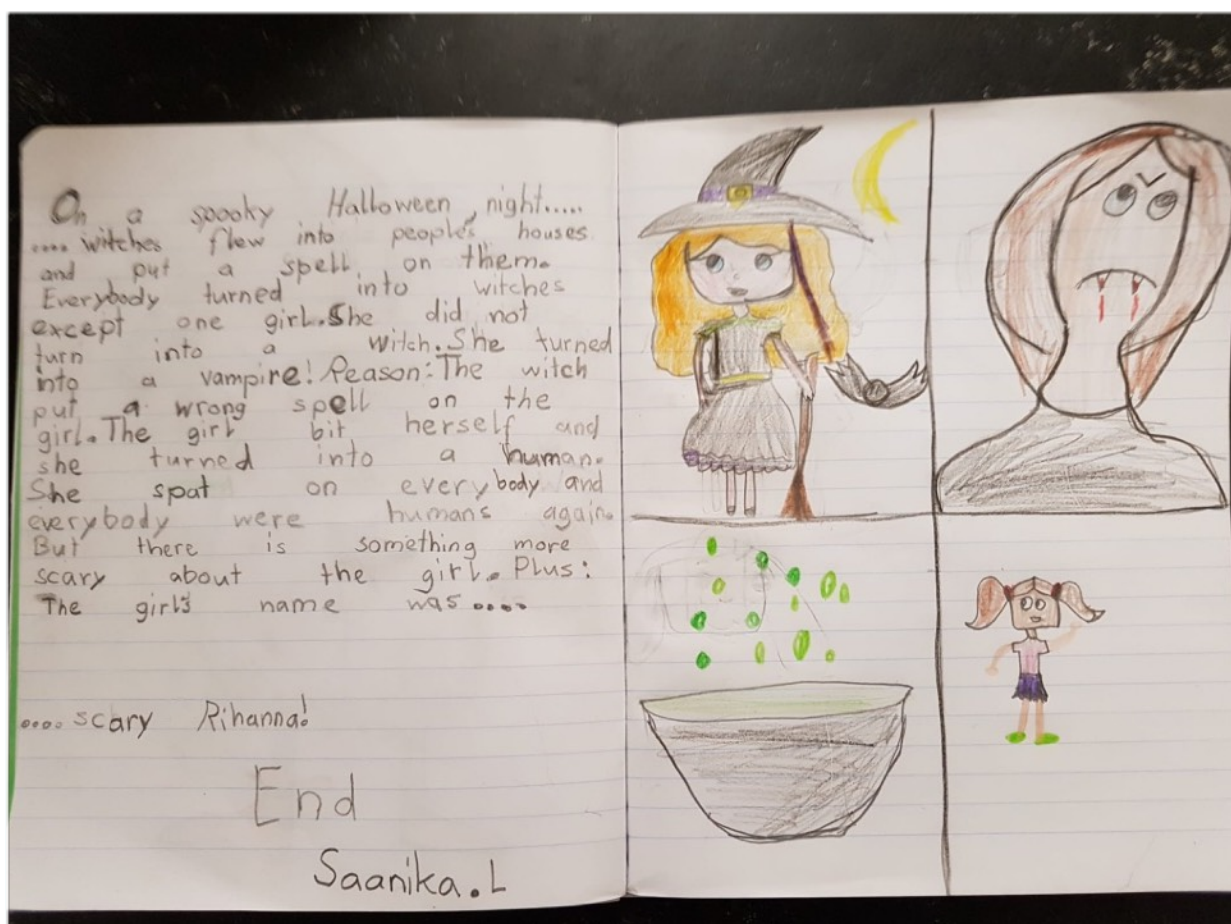 On a spooky Halloween night.....
.... witches flew into people's houses
and put a spell on them.
Everybody turned into witches
except one girl. She did not
turn into a witch. She turned
into a vampire! Reason: The witch
put a wrong spell on the
girl. The girl bit herself and
she turned into a human.
She spat on everybody and
everybody were humans again.
But there is something more
scary about the girl. Plus:
The girl's name was ....
.... scary Rihanna!
End
Saanika. L